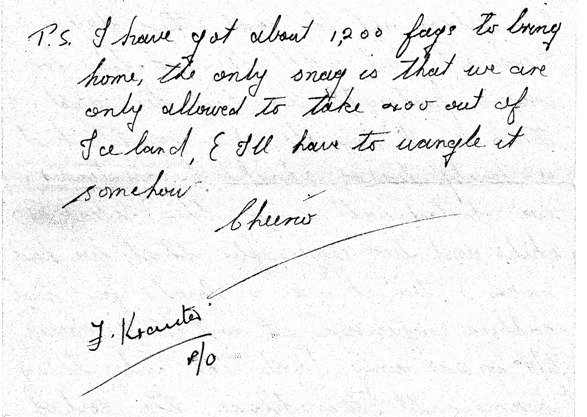 P.S. I have got about 1,200 fags to bring
home, the only snag is that we are
only allowed to take 200 out of
Iceland, & I'll have to wangle it
somehow.
Cheerio
F. Krauter.
P/O